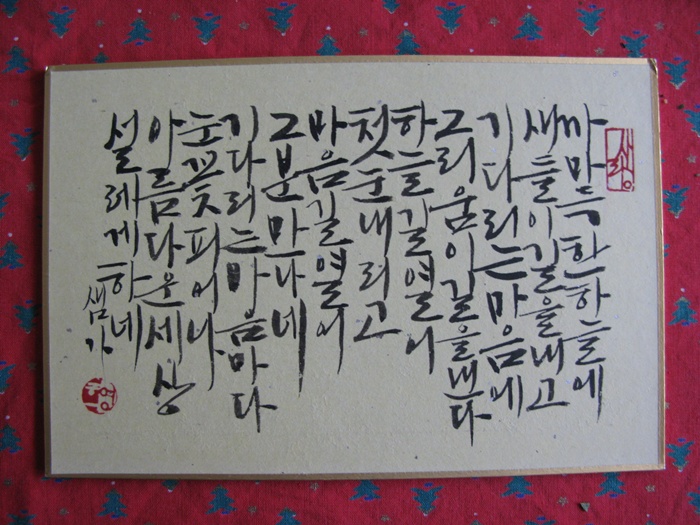 사랑
까마득한하늘에
새들이길을내고
기다리는마음에
그리움이길을낸다
하늘길열어
첫눈내리고
마음길열어
그분만나네
기다리는마음마다
눈꽃피어나
아름다운세상
설레게하네
샘가